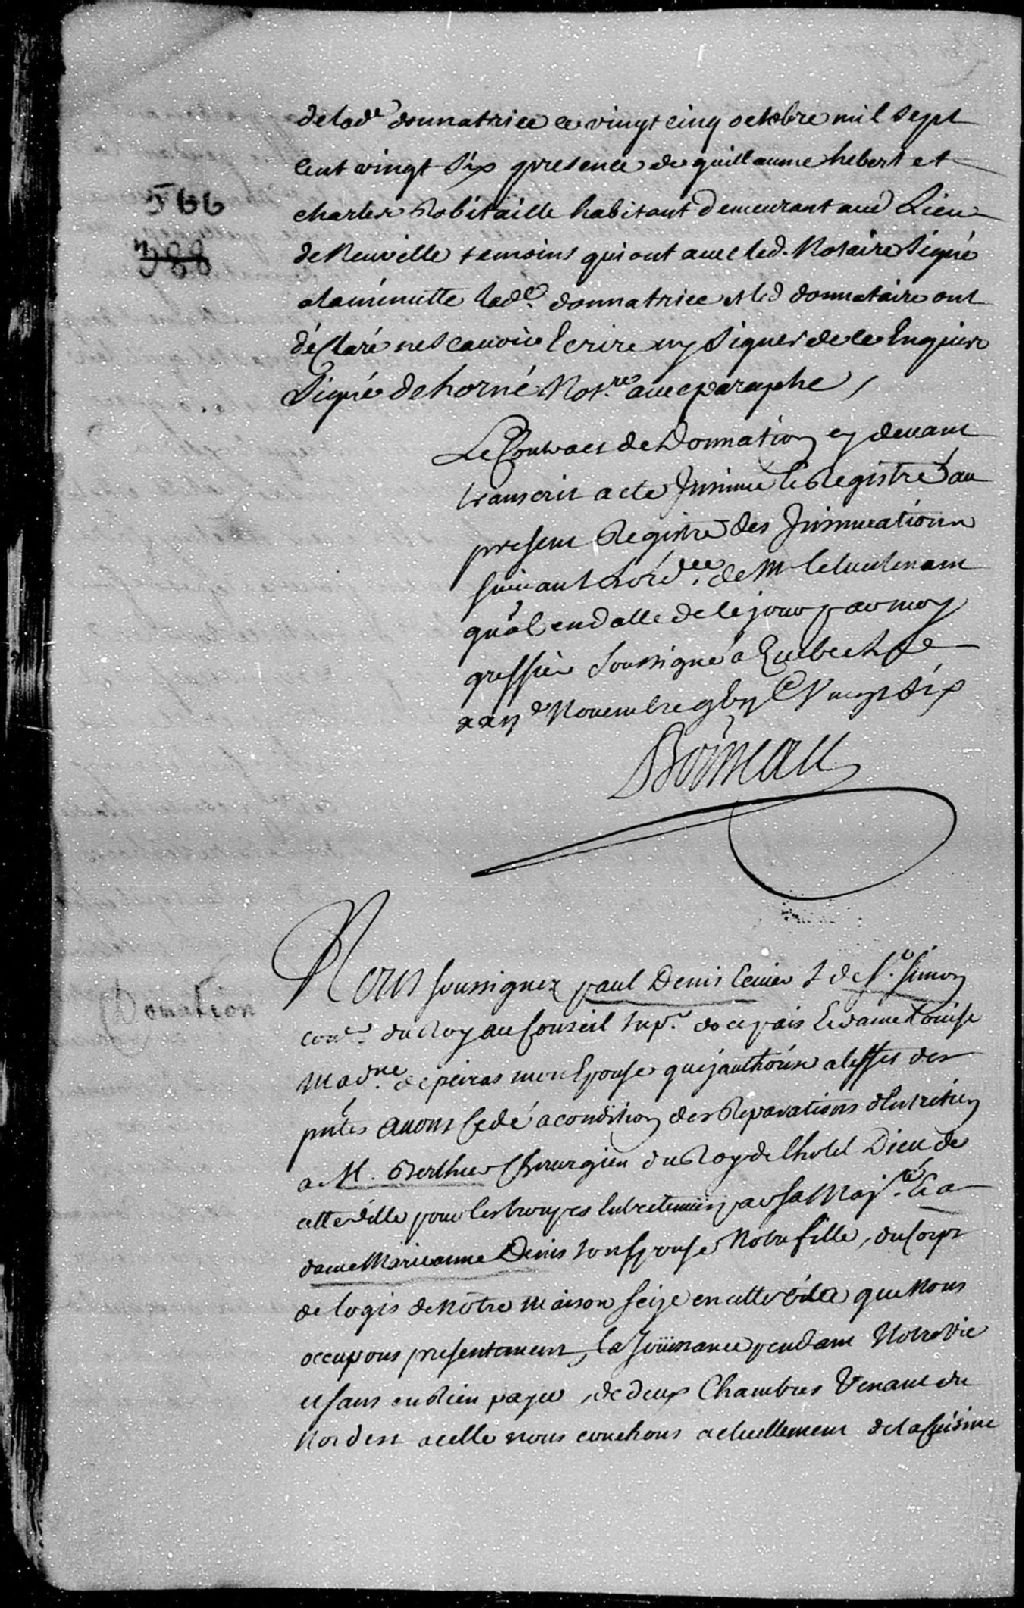 delad<sup>e</sup> donnatrice ce vingt cinq octobre mil sept
cent vingt Six presence de guillaume hebert et
charles Robitaille habitant demeurant aud Lieu
566
de Neuville temoins qui ont avec led. Notaire Signé
388
alaminutte lad<sup>e</sup>. donnatrice et led donnataire ont
déClaré ne Scavoir Ecrire ny Signer de ce Enquis
Signé dehorné Not<sup>re</sup> avec paraphe /
Le Contract de Donnation cy devant
transcrit a eté Insinué et Registré au
present Registre des Insinuations
suivant Lord<sup>ce</sup>. de M le lieutenant
gñal en datte de ce jour par moy
greffier Soussigné a Quebec le
Novembre Vingt Six
Boisseau
Nous soussignez paul Denis de S<sup>t</sup>. Simon
Donation
con<sup>er</sup>. du Roy au Conseil Sup<sup>r</sup>. de ce pais Et dame Louise
Mad<sup>ne</sup>. depeiras mon Epouse que jauthorise a leffet des
pñtes avons Cedé a condition des Reparations dEntretien
a M. Berthier Chirurgien du Roy de lhotel Dieu de
cette ville pour les troupes Entretenues par sa Maj<sup>té</sup>. Et a
dame Marieanne Denis son Epouse Notre fille, du Corps
de logis de Notre maison seize en cette ville que Nous
occupons presentement, la Joüissance pendant Notre vie
et sans en Rien payer, de deux Chambres Venant du
Nordest a celle nous couchons actuellement de la Cuisine